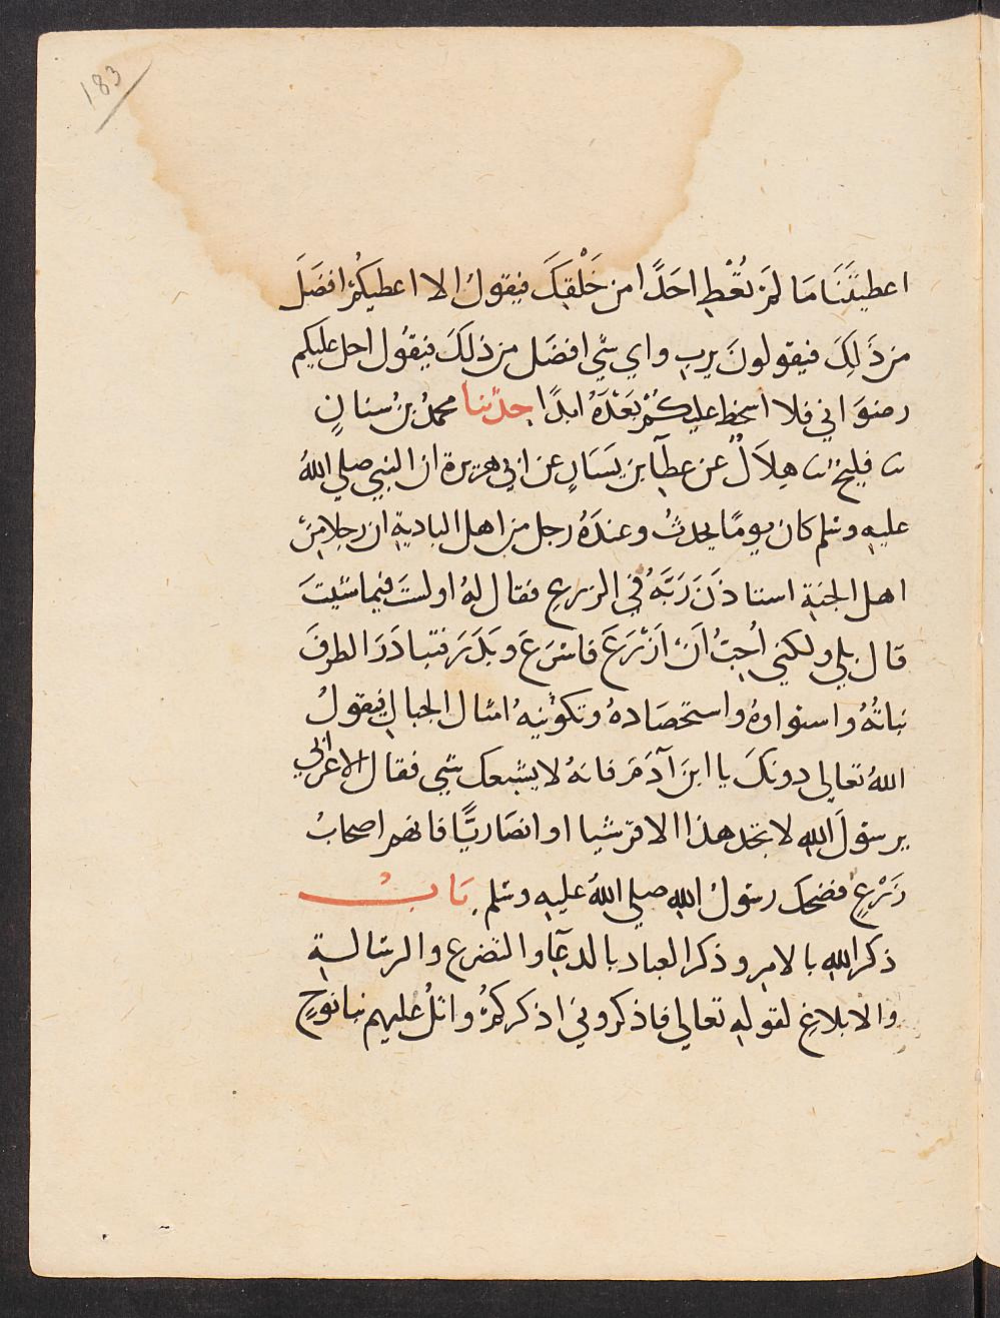 183
اعطيتَنَا مَا لمْ تُعْطِ احَدًا من خَلْقِكَ فيقولُ الا اعطيكُمْ افضَلَ
من ذَلِكَ فيقولونَ يرب واي شي افضَل من ذلكَ فيقُول احل عليكم
رضوَاني فلا اسخط عليكُمْ بَعْدَهُ ابدًا حدّثنا محمدُ بنُ سنانٍ
ثنا فليحٌ ثنا هِلاَلٌ عن عطآ بن يَسَارٍ عن ابي هريرة ان النبي صلي اللهُ
عليه وسلم كان يومًا يحدثُ وعندَهُ رجل من اهل البادية ان رجلا مِنْ
اهل الجنةِ استاذَنَ رَبَّهُ في الزرعِ فقال لهُ اولستَ فيما شئتَ
قال بلي ولكني اُحِبُّ اَنْ اَزْرَعَ فاسْرَعَ وبَذَرَ فتبادَرَ الطرفَ
نباتُهُ واستواوهُ واستحصَادهُ وتكويْنهُ امثال الجبالِ فيقولُ
اللهُ تعالي دونكَ يا ابنَ آدَمَ فانهُ لا يشبعك شي فقال الاعرابي
يرسُولَ اللهِ لا تجد هذا الا قرشيا او انصَاريًّا فانهم اصحابُ
زَرْعٍ فضحك رسُولُ اللهِ صلي اللهُ عليه وسلم بَابْ
ذكر اللهِ بالامر وذكر العباد بالدعآ والتضرع والرسالة
والابلاغِ لقولهِ تعالي فاذكروني اذكركُمْ واتلُ عليهم نبا نوحٍ